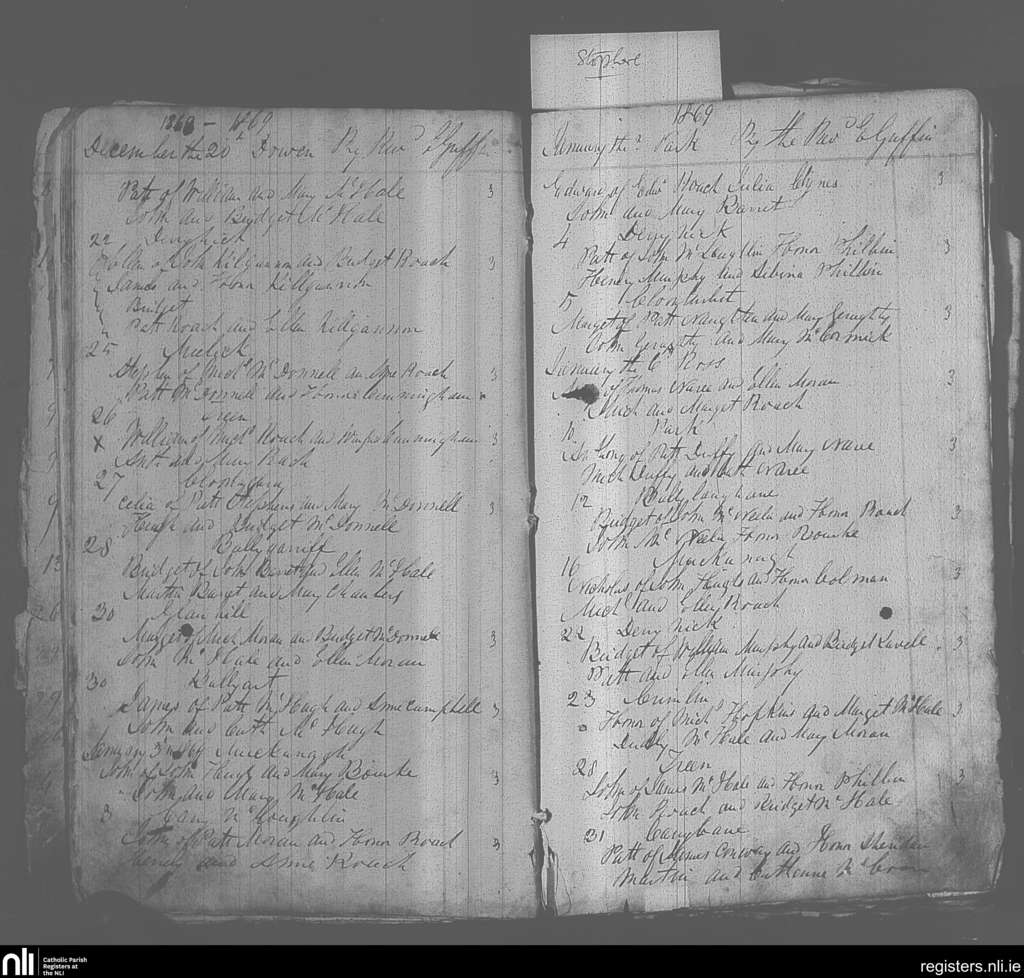 Stophere
1868 - 1869
December the 20th Dowen By Revd E Griffin
Patt of William and Mary McHale 3
John and Bridget McHale
22 Derryhick
Ellen of John Kilgannon and Bridget Roach 3
James and Honor Killgannon
Bridget
Patt Roach and Ellen Kilgannon
25 Mielick
Stephen of Michl McDonnell and Roach 3
Patt McDonnell and Honor Cunningham
26 Treen
X William of Michl Roach and Cunningham 3
Anty and Mary Roach
27
Celia of Patt Stephens and Mary McDonnell 3
Hugh and Bridget McDonnell
28 Ballygarriff
Bridget of John Barret and Ellen McHale
Martin Barret and Mary Chambers
30
Marget of Mich Moran and Bridget McDonnell 3
John McHale and Ellen Moran
30 Ballyart
James of Patt McHugh and Anne Campbell 3
John and Cath McHugh
January 3rd 169 Muckanagh
John of John Haugh and Mary Bourke 3
John and Mary McHale
3 McLoughlin
John of Patt Moran and Honor Roach 3
Henery and Anne Roach
1869
January the Park By the Revd E Griffin
Edward of Edwd Roach Julia Hynes 3
John and Mary Barret
4 Derryhick
Patt of John McLaughlin Honor Philbin 3
Henery Murphy and Sibina Philbin
5
Marget of Patt Naughten and Mary Geraghty 3
John Geraghty and Mary McCormick
January the 6th Ross
of Thomas Naree and Ellen Moran 3
Mich and Marget Roach
10 Park
Anthony of Patt Duffy and Mary Naree 3
Mich Duffy and Cath Naree
12 Ballylaughane
Bridget of John McNeela and Honor Roach 3
John McNeela Honor Rourke
16 Muckanaugh
Nicholas of John Haugh and Honor Colman 3
Michl and Elley Roach
22 Derryhick
Bridget of William Murphy and Bridget Lavell 3
Patt and Ellen Murphy
23 Crimlin
Honor of Michl Hopkins and Marget McHale 3
Duddy McHale and Mary Moran
28 Treen
John of James McHale and Honor Philbin 3
John Roach and Bridget McHale
31
Patt of James Conway and Honor Sheridan
Martin and Catherine
nli Catholic Parish
Registers at
the NLI
registers.nli.ie